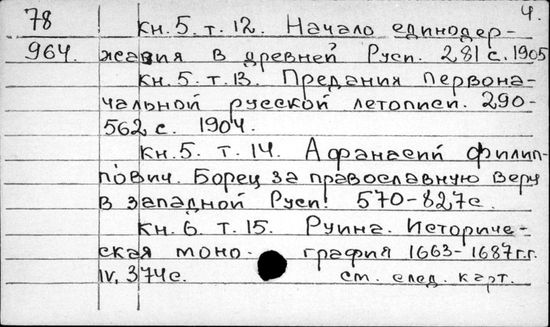 4.
78 кн. 5. т. 12. Начало единодер-
964. жавия в древней Руси. 281 с. 1905
кн. 5. т. 13. Предания первона-
чальной русской летописи. 290-
562 с. 1904.
кн. 5. т. 14. Афанасий Филип-
пович. Борец за православную веру
в западной Руси! 570-827с.
кн. 6. т. 15. Руина. Историче-
ская моно- графия 1663-1687г.г.
IV, 374с. см. след. карт.